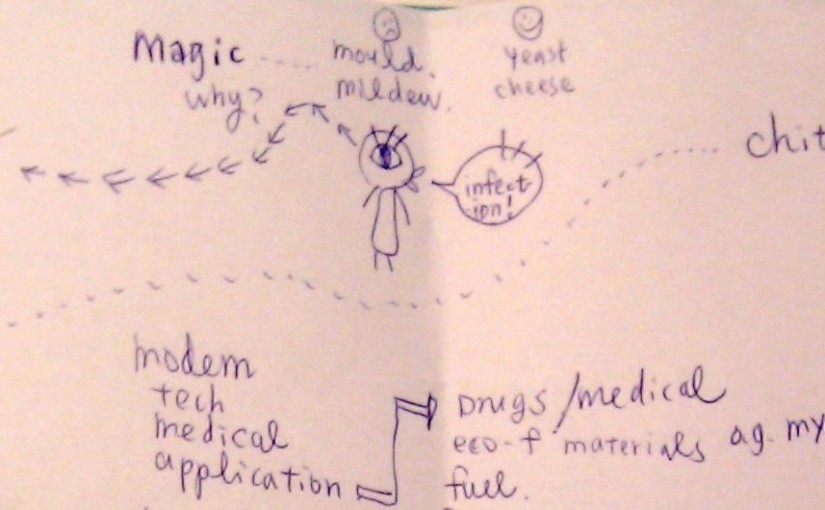 magic
why?
mould.
mildew.
yeast
cheese
infect-
ion!
chit
modern
tech
medical
application
Drugs/medical
eco-f materials ag. my
fuel.